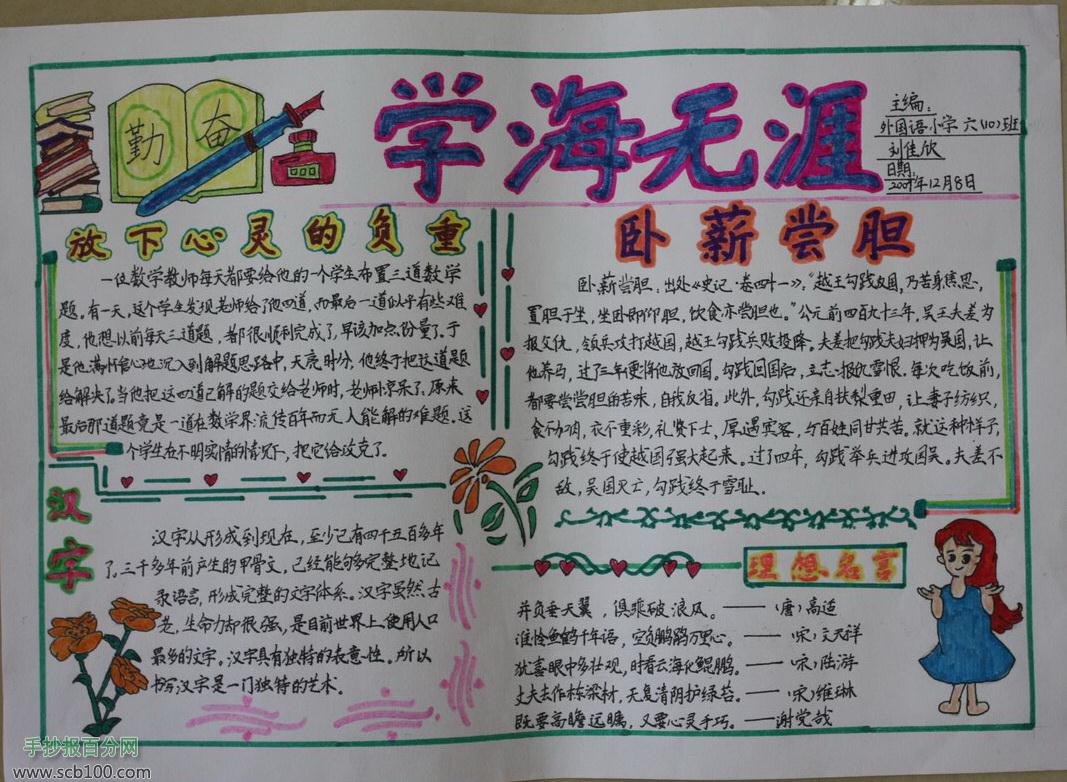 勤 奋
学海无涯
主编:
外国语小学 六(10)班
刘佳欣
日期:
2009年12月8日
放下心灵的负重
一位数学教师每天都要给他的一个学生布置三道数学
题。有一天,这个学生发现老师给了他四道,而最后一道似乎有些难
度,他想以前每天三道题,都很顺利完成了,早该加点份量了。于
是他满怀信心地沉入到解题思路中,天亮时分,他终于把这道题
给解决了。当他把这四道已解的题交给老师时,老师惊呆了,原来
最后那道题竟是一道在数学界流传百年而无人能解的难题。这
个学生在不明实情的情况下,把它给攻克了。
卧薪尝胆
卧薪尝胆:出处《史记·卷四十一》,“越王勾践反国,乃苦身焦思,
置胆于坐,坐卧即仰胆,饮食亦尝胆也。”公元前四百九十三年,吴王夫差为
报父仇,领兵攻打越国,越王勾践兵败投降。夫差把勾践夫妇押解吴国,让
他养马,过了三年便将他放回国。勾践回国后,立志报仇雪恨。每次吃饭前,
都要尝尝胆的苦味,自我反省。此外,勾践还亲自扶犁重田,让妻子纺织,
食不加肉,衣不重彩,礼贤下士,厚遇宾客,与百姓同甘共苦。就这种样子,
勾践终于使越国强大起来。过了四年,勾践举兵进攻国吴。夫差不
敌,吴国灭亡,勾践终于雪耻。
汉字
汉字从形成到现在,至少已有四千五百多年
了。三千多年前产生的甲骨文,已经能够完整地记
录语言,形成完整的文字体系。汉字虽然古
老,生命力却很强,是目前世界上使用人口
最多的文字。汉字具有独特的表意性。所以
书写汉字是一门独特的艺术。
理想名言
并负垂天翼,俱乘破浪风。——(唐)高适
谁怜鱼鹤千年语,空负鹏鹞万里心。——(宋)文天祥
犹喜眼中多壮观,时看云海化鲲鹏。——(宋)陆游
丈夫去作栋梁材,无复清阴护绿苔。——(宋)维琳
既要高瞻远瞩,又要心灵手巧。——谢觉哉
手抄报百分网
www.scb100.com